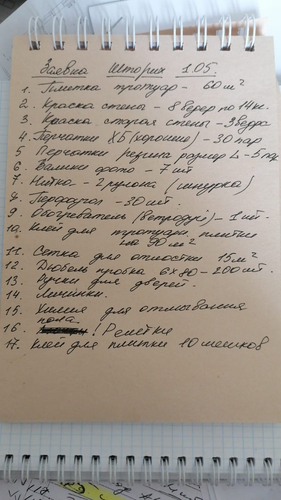 Заявка Шторих 1.05.
1. Плитка тротуар - 60 м²
2. Краска стены - 8 ведер по 14 кг.
3. Краска старая стены - 3 ведра
4. Перчатки ХБ (хорошие) - 30 пар
5 Перчатки резина размер L - 5 пар
6. Валики фото - 7 шт
7. Нитка - 2 рулона (шнурка)
9. Обогреватель (ветродуй) - 1 шт.
10. Клей для тротуарн. плитки
на 90 м²
11. Сетка для откостки 15 м²
12. Дюбель пробка 6х40 - 200 шт.
13. Ручки для дверей.
14. Личинки.
15. Химия для отмывания
пола.
16. ! Решетки
17. Клей для плитки 10 мешков